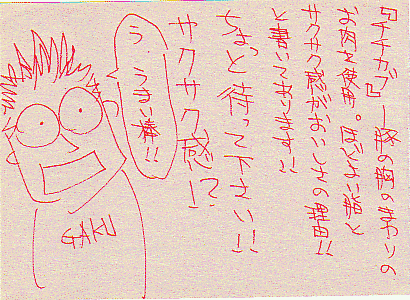 『チチカブ』―豚の胸のまわりの
お肉を使用。ほどよい脂と
サクサク感がおいしさの理由!!
と書いてあります!!
ちょっと待って下さい!!
サクサク感!?
う、うまい棒!!
GAKU